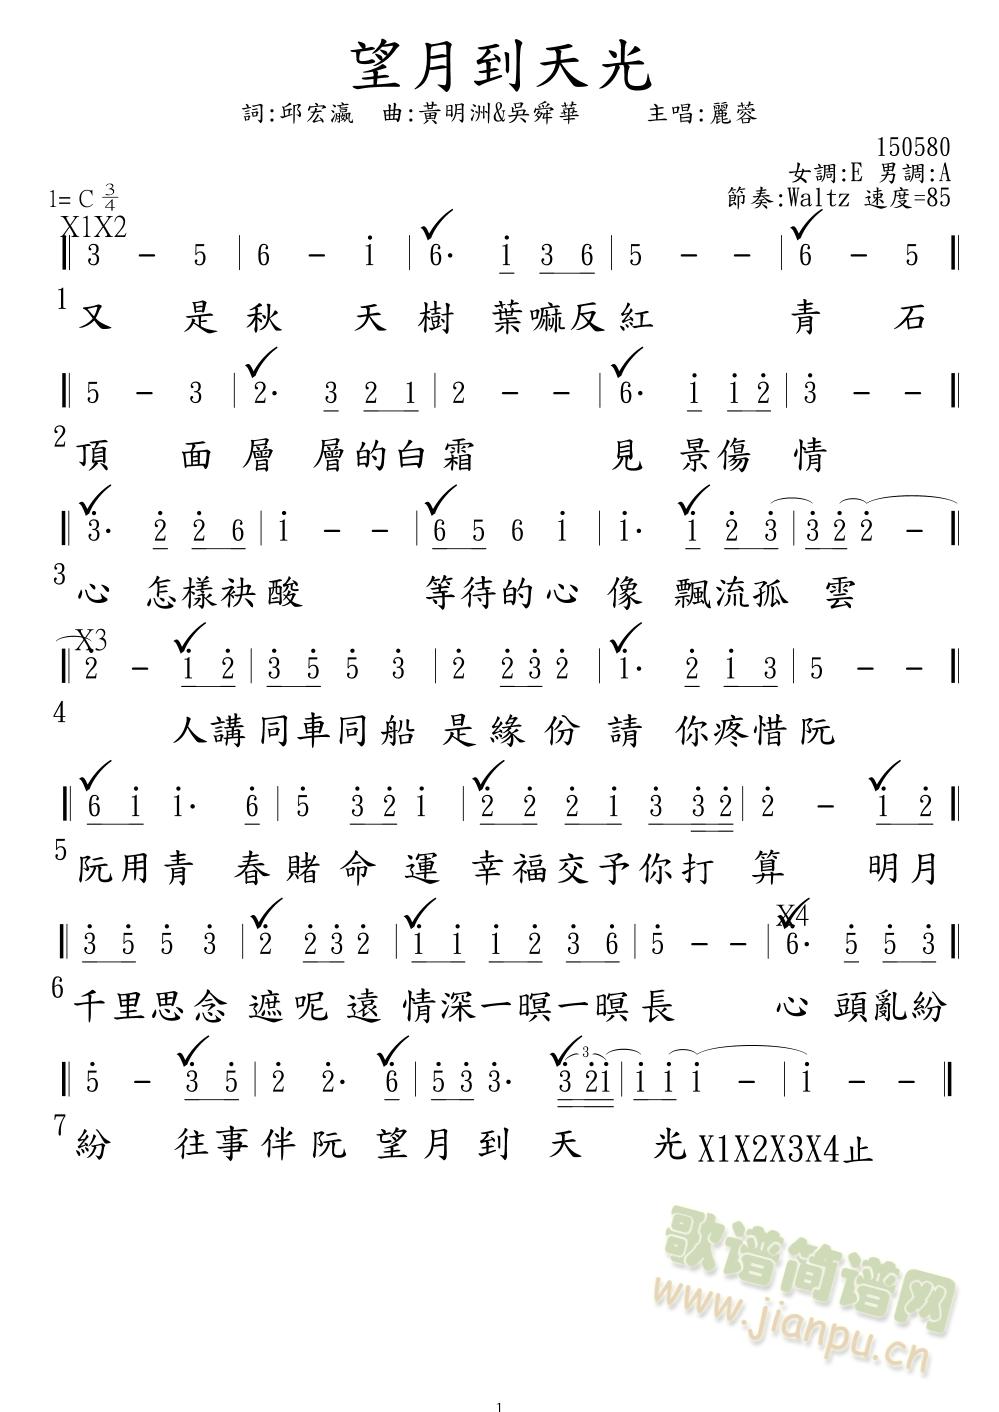 望月到天光
詞:邱宏瀛 曲:黃明洲&吳舜華 主唱:麗蓉
150580
女調:E 男調:A
1= C 3/4 節奏:Waltz 速度=85
X1X2
3 - 5 | 6 - i | 6· i 3 6 | 5 - - | 6 - 5
1 又 是 秋 天 樹 葉嘛反紅 青 石
5 - 3 | 2· 3 2 1 | 2 - - | 6· i i 2̇ | 3̇ - -
2 頂 面 層 層的白霜 見 景傷 情
3̇· 2̇ 2̇ 6 | i - - | 6 5 6 i | i· i 2̇ 3̇ | 3̇ 2̇ 2̇ -
3 心 怎樣袂酸 等待的心 像 飄流孤 雲
X3
2̇ - i 2̇ | 3̇ 5̇ 5̇ 3̇ | 2̇ 2̇ 3̇ 2̇ | i· 2̇ i 3 | 5 - -
4 人講同車同船 是緣份 請 你疼惜阮
6 i i· 6 | 5 3̇ 2̇ i | 2̇ 2̇ 2̇ i 3̇ 3̇ 2̇ | 2̇ - i 2̇
5 阮用青 春賭命 運 幸福交予你打 算 明月
X4
3̇ 5̇ 5̇ 3̇ | 2̇ 2̇ 3̇ 2̇ | i i i 2̇ 3̇ 6̇ | 5̇ - - | 6̇· 5̇ 5̇ 3̇
6 千里思念 遮呢遠 情深一暝一暝長 心 頭亂紛
5̇ - 3̇ 5̇ | 2̇ 2̇· 6̇ | 5̇ 3̇ 3̇· 3̇ 2̇ i | i i i - | i - -
3
7 紛 往事伴阮 望月到 天 光 X1X2X3X4止
歌谱简谱网
www.jianpu.cn
1